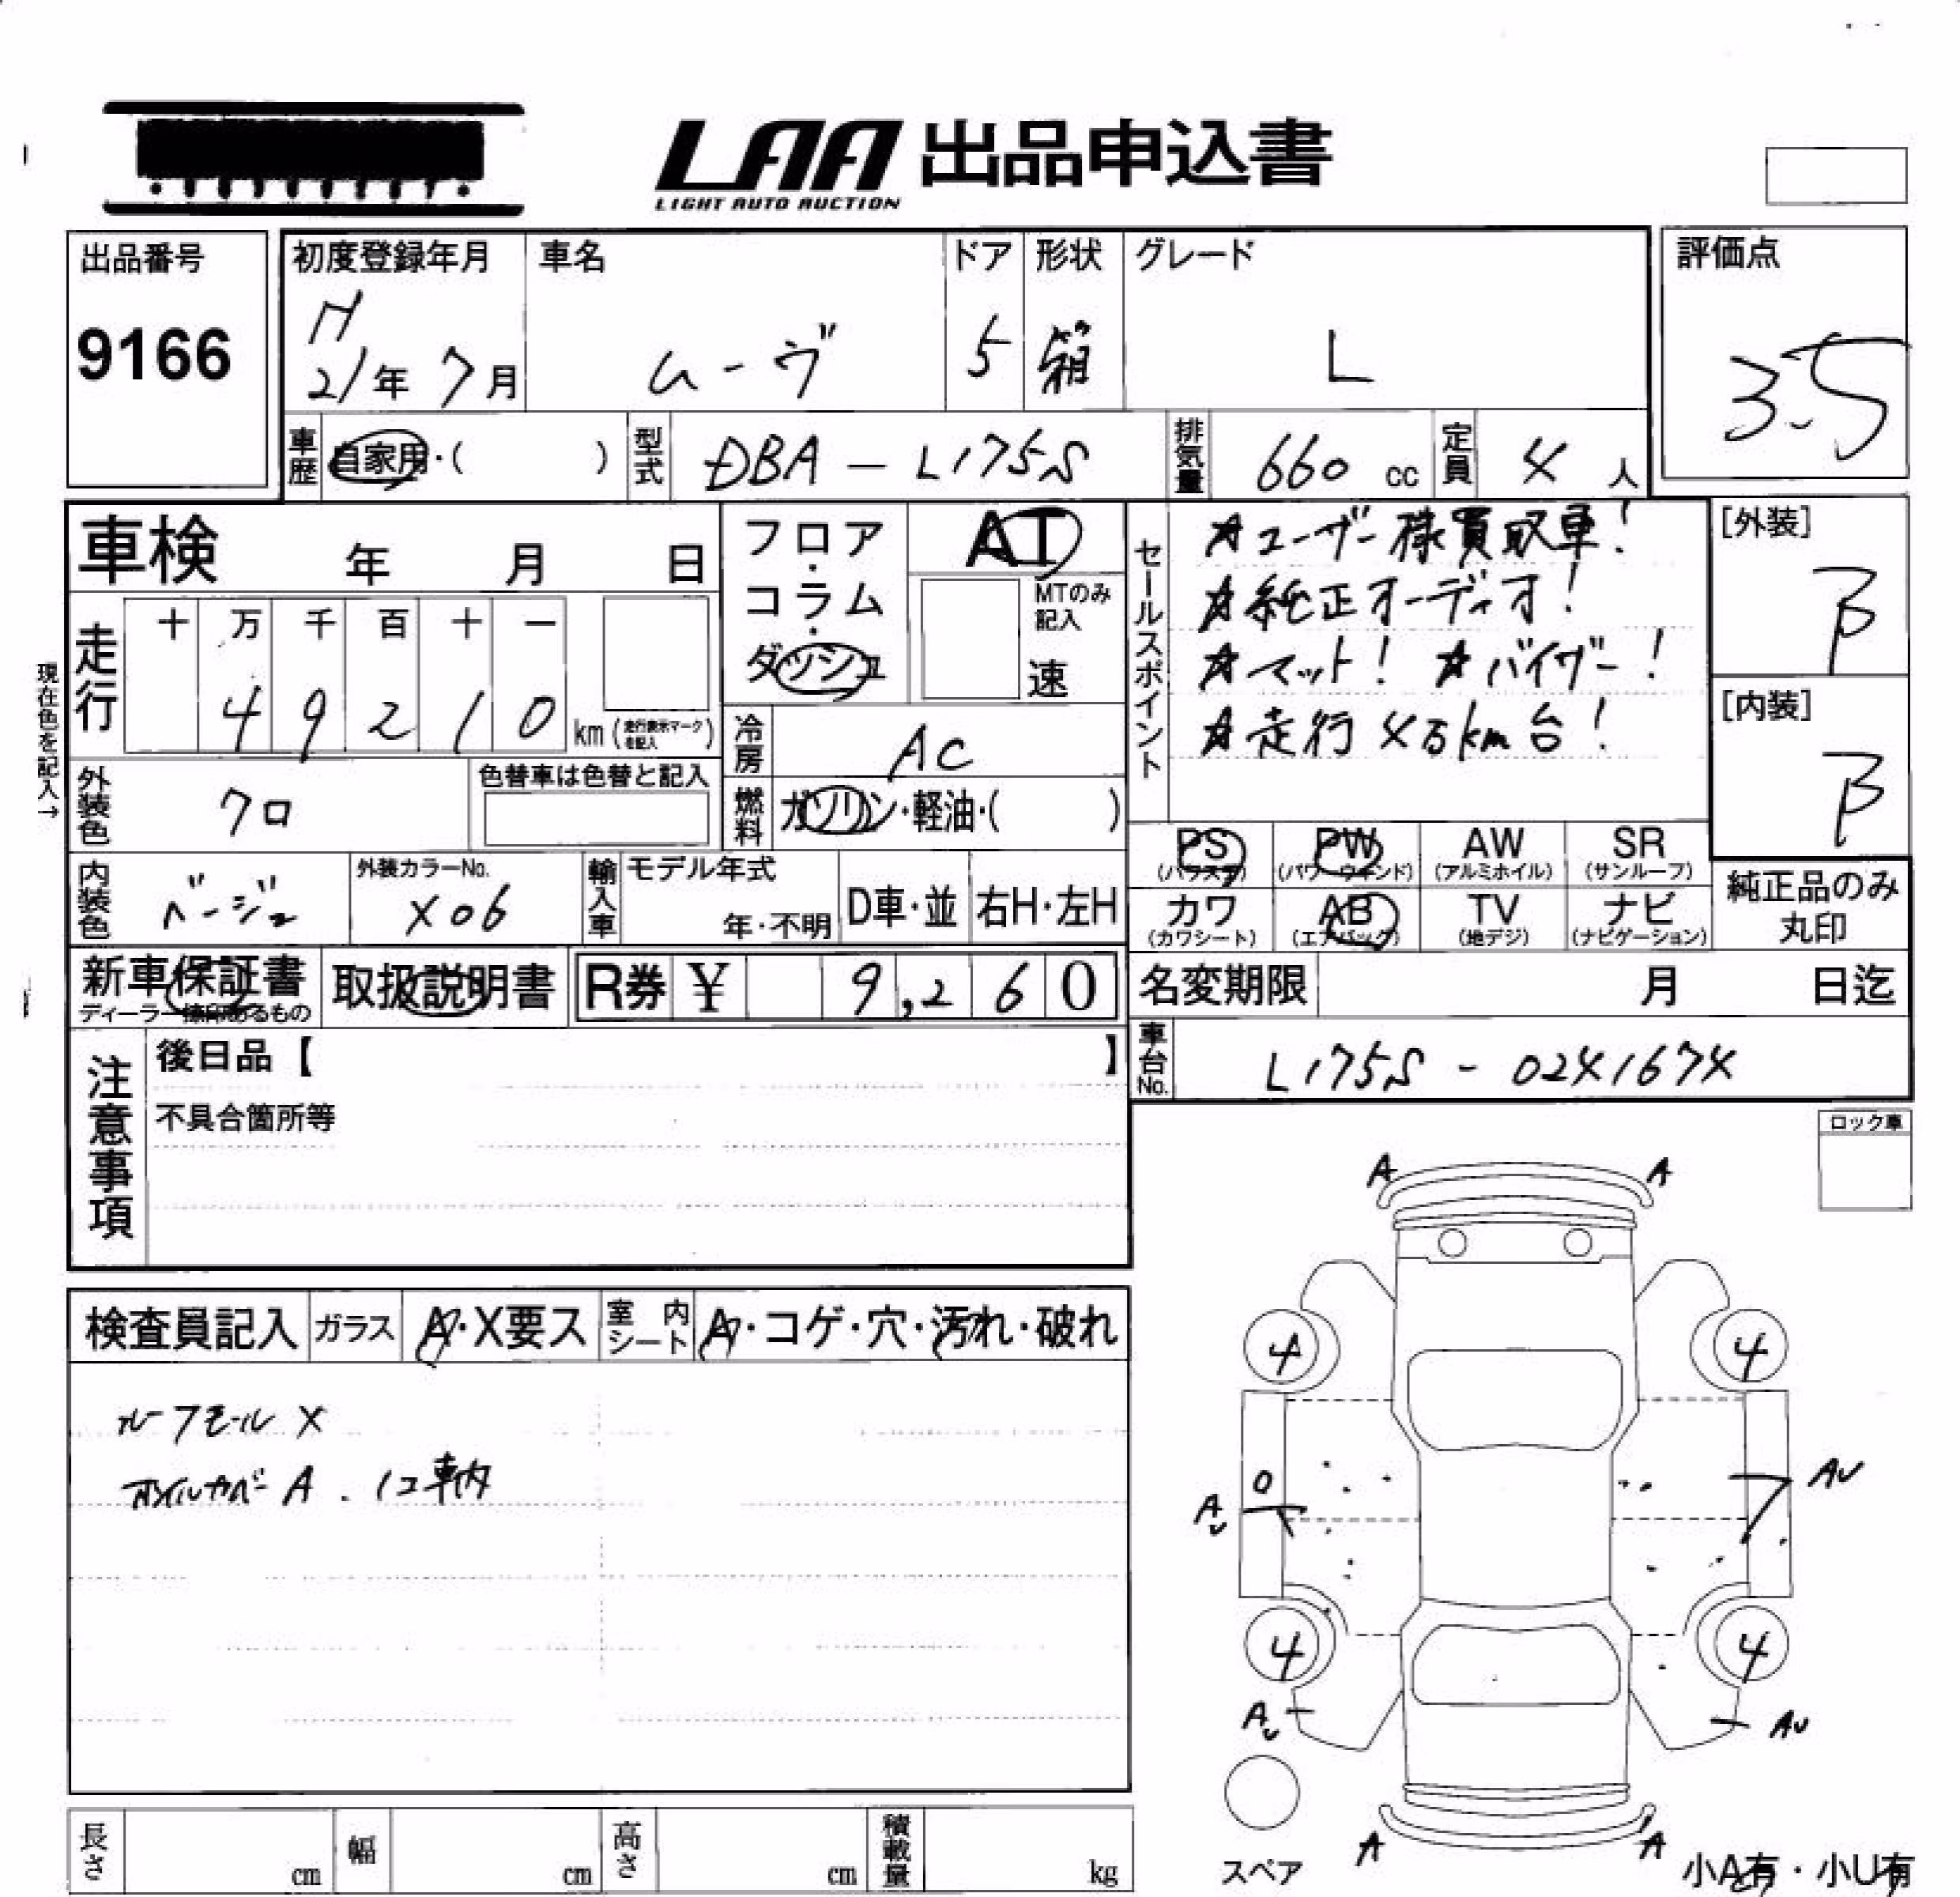 LAA 出品申込書
LIGHT AUTO AUCTION
出品番号
9166
初度登録年月
H
21年 7月
車名
ムーヴ
ドア
5
形状
箱
グレード
L
評価点
3.5
車歴
自家用・( )
型式
DBA - L175S
排気量
660 cc
定員
4 人
車検 年 月 日
フロア・コラム・ダッシュ
AT
MTのみ記入
速
セールスポイント
★ユーザー様買取車!
★純正オーディオ!
★マット! ★バイザー!
★走行4万km台!
[外装]
B
[内装]
B
現在色を記入→
走行
十 万 千 百 十 一
4 9 2 1 0 km (走行表示マークを記入)
冷房
AC
外装色
クロ
色替車は色替と記入
燃料
ガソリン・軽油・( )
PS
(パワステ)
PW
(パワーウインド)
AW
(アルミホイル)
SR
(サンルーフ)
内装色
ベージュ
外装カラーNo.
X06
輸入車
モデル年式
年・不明
D車・並
右H・左H
カワ
(カワシート)
AB
(エアバッグ)
TV
(地デジ)
ナビ
(ナビゲーション)
純正品のみ
丸印
新車保証書
ディーラー捺印あるもの
取扱説明書
R券 ¥ 9,260
名変期限 月 日迄
車台No.
L175S - 0241674
注意事項
後日品【 】
不具合箇所等
ロック車
検査員記入
ガラス
A・X要ス
室内シート
A・コゲ・穴・汚れ・破れ
ルーフモール X
オイルカバー A. 1コ車内
A A
4 4
0
AU AU
4 4
AU AU
スペア
A A
小A有・小U有
長さ cm
幅 cm
高さ cm
積載量 kg